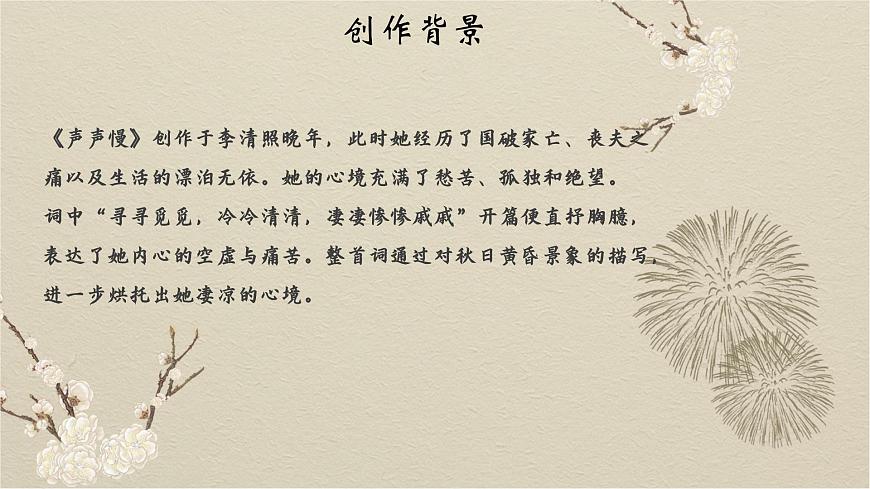 创作背景
《声声慢》创作于李清照晚年，此时她经历了国破家亡、丧夫之
痛以及生活的漂泊无依。她的心境充满了愁苦、孤独和绝望。
词中“寻寻觅觅，冷冷清清，凄凄惨惨戚戚”开篇便直抒胸臆，
表达了她内心的空虚与痛苦。整首词通过对秋日黄昏景象的描写，
进一步烘托出她凄凉的心境。